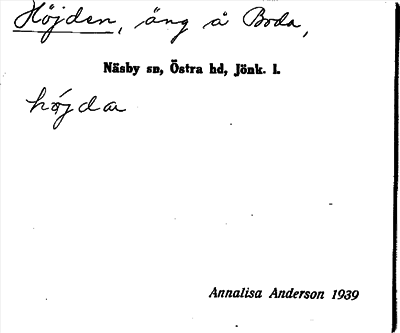 Höjden, äng å Boda,
Näsby sn, Östra hd, Jönk. l.
höjda
Annalisa Anderson 1939